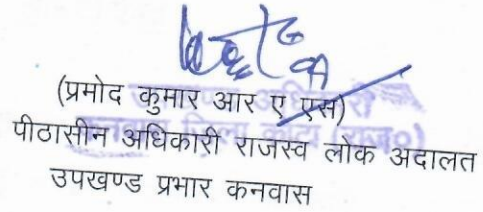 (प्रमोद कुमार आर ए एस)
पीठासीन अधिकारी राजस्व लोक अदालत
उपखण्ड प्रभार कनवास